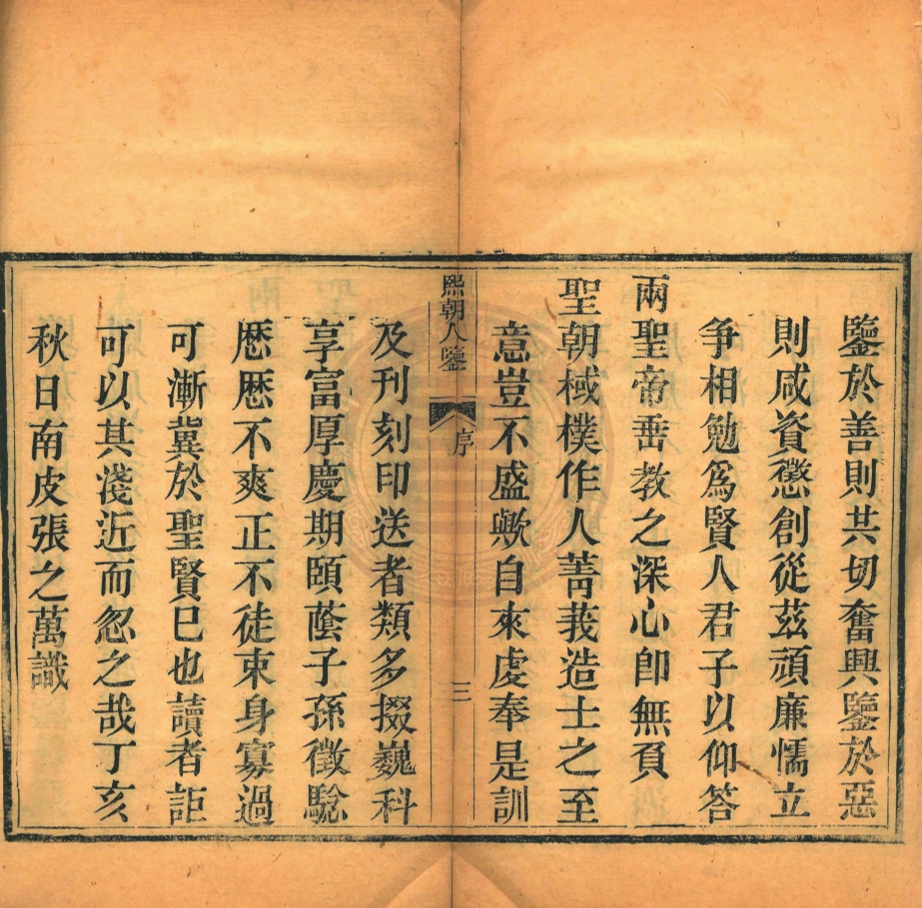 鑒於善則共切奮興鑒於惡
則咸資懲創從茲頑廉懦立
争相勉爲賢人君子以仰答
兩聖帝垂教之深心卽無負
聖朝棫樸作人菁莪造士之至
意豈不盛歟自來虔奉是訓
熙朝人鑒
序
三
及刊刻印送者類多掇巍科
享富厚慶期頤蔭子孫徵驗
歷歷不爽正不徒束身寡過
可漸冀於聖賢已也讀者詎
可以其淺近而忽之哉丁亥
秋日南皮張之萬識